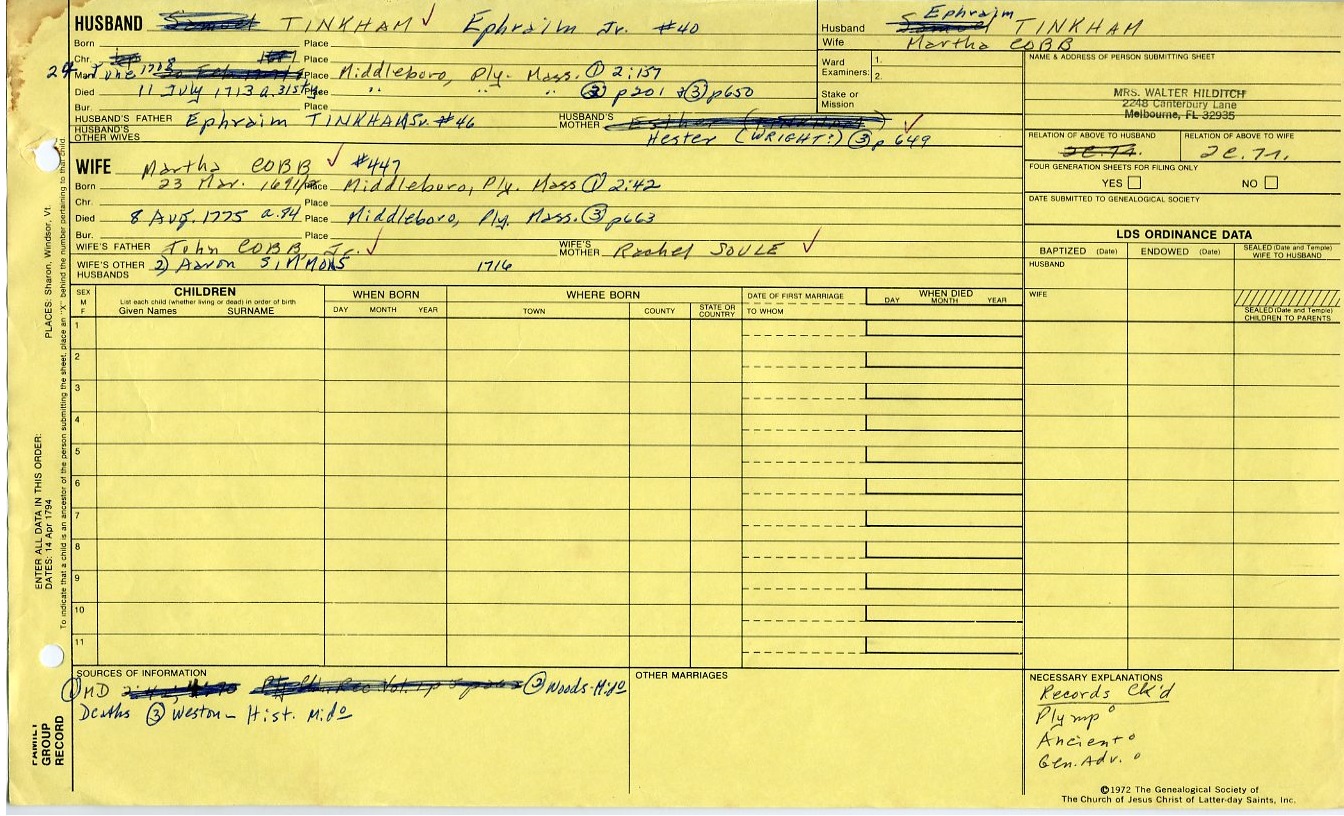 HUSBAND TINKHAM ✓ Ephraim Jr. #40
Born Place
Chr. Place
24 June 1708
Marr. Place Middleboro, Ply. Mass. ① 2:157
Died 11 July 1713 a. 31st yr Place " " " ② p201 & ③ p650
Bur. Place
HUSBAND'S FATHER Ephraim TINKHAM Sr. #46 HUSBAND'S MOTHER Hester (WRIGHT?) ③ p 649 ✓
HUSBAND'S OTHER WIVES
WIFE Martha COBB ✓ #447
Born 23 Mar. 1691/2 Place Middleboro, Ply. Mass ① 2:42
Chr. Place
Died 8 Aug. 1775 a. 84 Place Middleboro, Ply. Mass. ③ p663
Bur. Place
WIFE'S FATHER John COBB, Jr. ✓ WIFE'S MOTHER Rachel SOULE ✓
WIFE'S OTHER HUSBANDS 2) Aaron SIMMONS 1716
Husband Ephraim TINKHAM
Wife Martha COBB
Ward Examiners: 1.
2.
Stake or Mission
NAME & ADDRESS OF PERSON SUBMITTING SHEET
MRS. WALTER HILDITCH
2248 Canterbury Lane
Melbourne, FL 32935
RELATION OF ABOVE TO HUSBAND RELATION OF ABOVE TO WIFE
FOUR GENERATION SHEETS FOR FILING ONLY
YES NO
DATE SUBMITTED TO GENEALOGICAL SOCIETY
LDS ORDINANCE DATA
BAPTIZED (Date) ENDOWED (Date) SEALED (Date and Temple) WIFE TO HUSBAND
HUSBAND
WIFE
SEALED (Date and Temple) CHILDREN TO PARENTS
SEX M F
CHILDREN
List each child (whether living or dead) in order of birth
Given Names SURNAME
WHEN BORN
DAY MONTH YEAR
WHERE BORN
TOWN COUNTY STATE OR COUNTRY
DATE OF FIRST MARRIAGE
TO WHOM
WHEN DIED
DAY MONTH YEAR
1
2
3
4
5
6
7
8
9
10
11
SOURCES OF INFORMATION
① MD ② Woods-Midº
Deaths ③ Weston - Hist. Midº
OTHER MARRIAGES
NECESSARY EXPLANATIONS
Records Ck'd
Plymp º
Ancient º
Gen. Adv. º
©1972 The Genealogical Society of
The Church of Jesus Christ of Latter-day Saints, Inc.
ENTER ALL DATA IN THIS ORDER:
DATES: 14 Apr 1794
PLACES: Sharon, Windsor, Vt.
To indicate that a child is an ancestor of the person submitting the sheet, place an "X" behind the number pertaining to that child
FAMILY GROUP RECORD